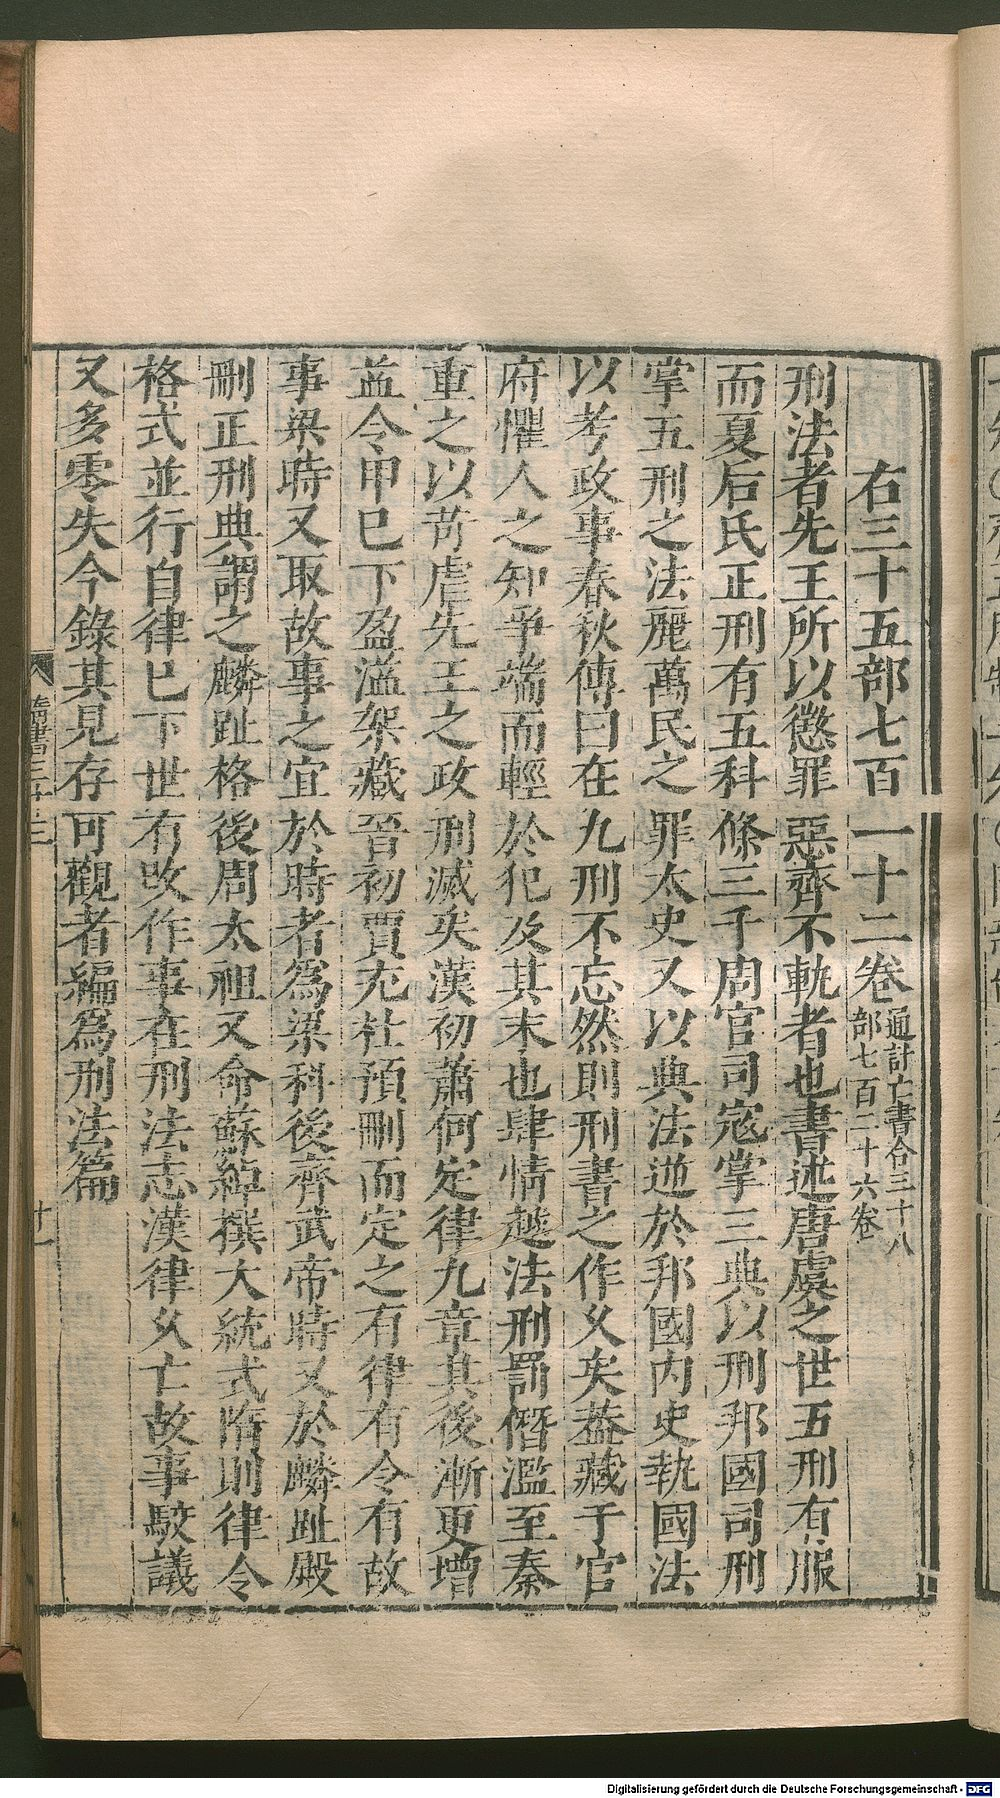 右三十五部七百一十二卷通計亡書合三十八部七百二十六卷
刑法者先王所以懲罪惡齊不軌者也書述唐虞之世五刑有服
而夏后氏正刑有五科條三千周官司寇掌三典以刑邦國司刑
掌五刑之法麗萬民之罪太史又以典法逆於邦國内史執國法
以考政事春秋傳曰在九刑不忘然則刑書之作久矣蓋藏于官
府懼人之知爭端而輕於犯及其末也肆情越法刑罰僭濫至秦
重之以苛虐先王之政刑滅矣漢初蕭何定律九章其後漸更增
益令甲已下盈溢架藏晉初賈充杜預刪而定之有律有令有故
事梁時又取故事之宜於時者為梁科後齊武帝時又於麟趾殿
刪正刑典謂之麟趾格後周太祖又命蘇綽撰大統式隋則律令
格式並行自律已下世有改作事在刑法志漢律久亡故事駮議
又多零失今錄其見存可觀者編為刑法篇
隋書三十三
十一
Digitalisierung gefördert durch die Deutsche Forschungsgemeinschaft - DFG